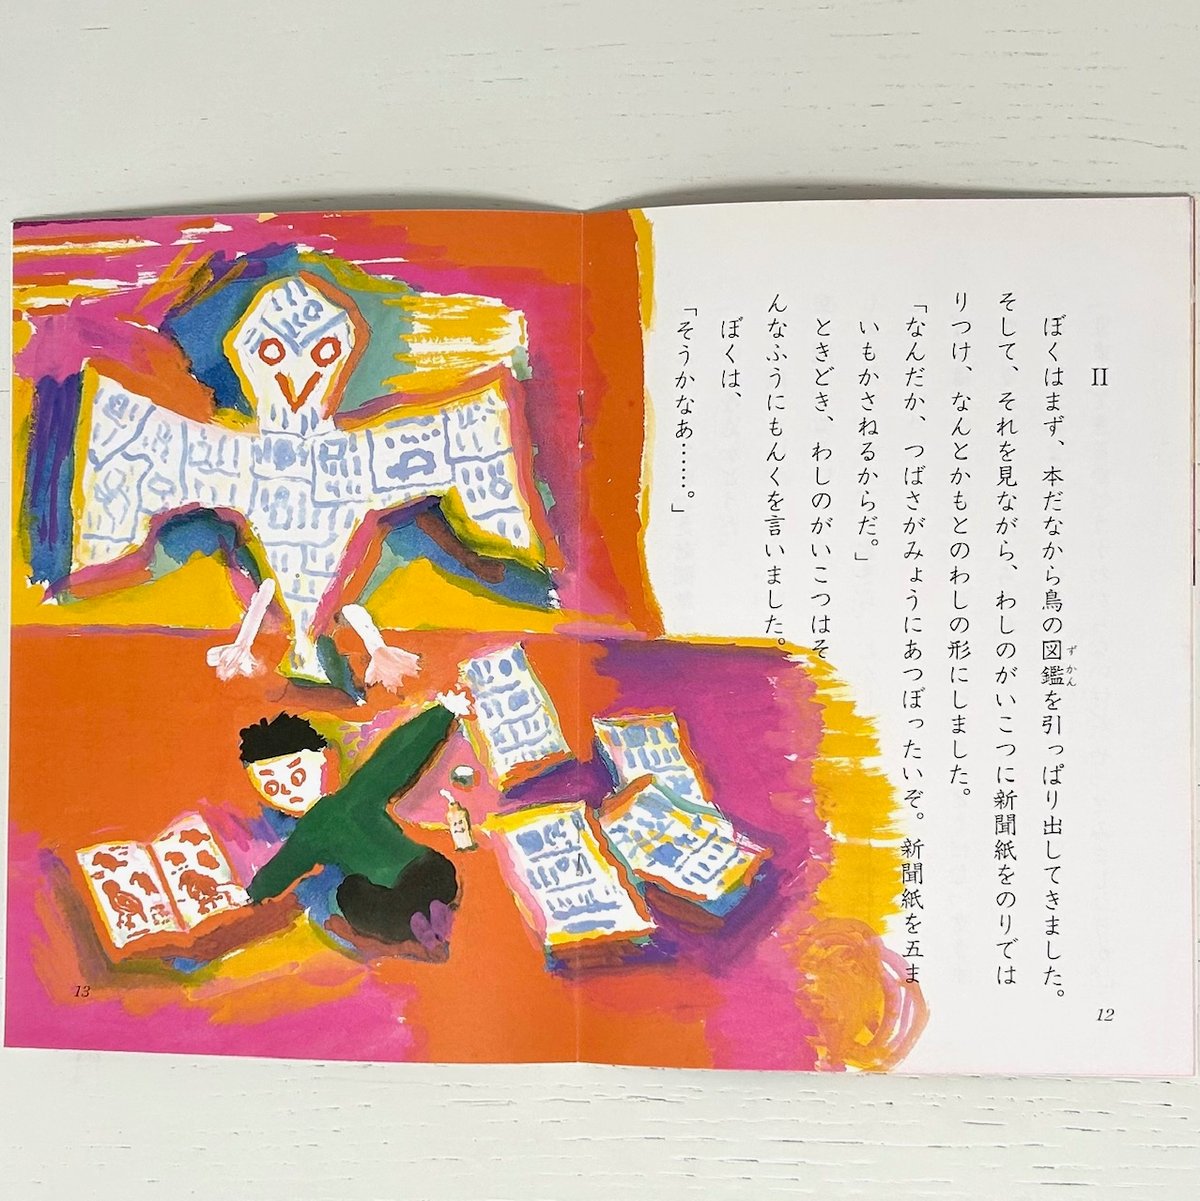 II
ぼくはまず、本だなから鳥の図鑑を引っぱり出してきました。
ずかん
そして、それを見ながら、わしのがいこつに新聞紙をのりでは
りつけ、なんとかもとのわしの形にしました。
「なんだか、つばさがみょうにあつぼったいぞ。新聞紙を五ま
いもかさねるからだ。」
ときどき、わしのがいこつはそ
んなふうにもんくを言いました。
ぼくは、
「そうかなあ……。」
12
13